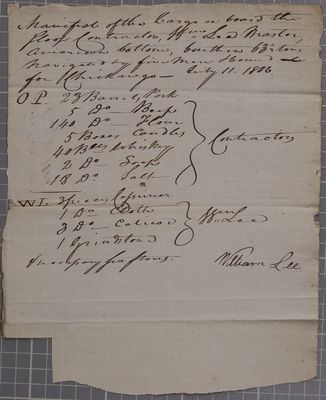 Manifest of the Cargo on board the
Sloop Contractor, Wm Lee Master
American bottom, burthen
navigated by five Men Bound
for Chickango – July 11. 1806
O P. 23 Barrels Pork
5 Do Beef
140 Do Flour
5 Boxes Candles
40 Bbls Whisky
2 Do Soap
18 Do Salt
Contractors
W L 3 pieces
1 Do Cloth
3 Do Calicoe
1 Grindstone
Wm Lee
William Lee